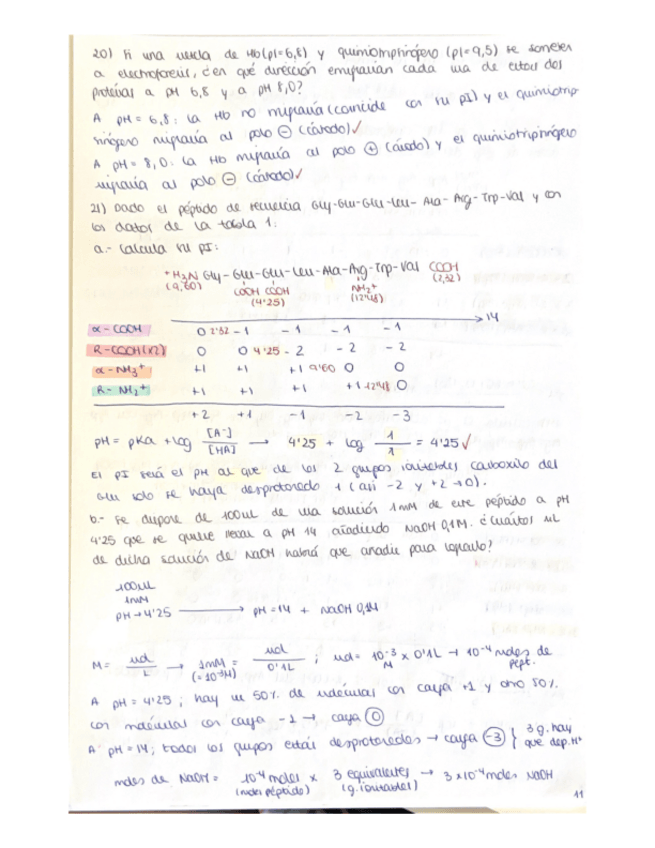 20) Si una mezcla de Hb (pI=6,8) y quimiotripsinógeno (pI=9,5) se someten
a electroforesis, ¿en qué dirección emigrarían cada una de estas dos
proteínas a pH 6,8 y a pH 8,0?
A pH = 6,8: La Hb no migraría (coincide con su pI) y el quimiotrip-
sinógeno migraría al polo ⊖ (cátodo) ✓
A pH = 8,0: La Hb migraría al polo ⊕ (ánodo) y el quimiotripsinógeno
migraría al polo ⊖ (cátodo) ✓
21) Dado el péptido de secuencia Gly-Glu-Glu-Leu- Ala- Arg-Trp-Val y con
los datos de la tabla 1:
a.- Calcula su pI:
+H3N Gly-Glu-Glu-Leu-Ala-Arg-Trp-Val COOH
(9,60) COOH COOH NH2+ (2,32)
(4'25) (12'48)
→ 14
α-COOH 0 2'32 -1 -1 -1 -1
R-COOH (x2) 0 0 4'25 -2 -2 -2
α-NH3+ +1 +1 +1 9'60 0 0
R-NH2+ +1 +1 +1 +1 12'48 0
+2 +1 -1 -2 -3
pH = pKa + log [A-]/[HA] → 4'25 + log 1/1 = 4'25 ✓
El pI será el pH al que de los 2 grupos ionizables carboxilo del
Glu solo se haya desprotonado 1 (así -2 y +2 → 0).
b.- Se dispone de 100mL de una solución 1mM de este péptido a pH
4'25 que se quiere llevar a pH 14 añadiendo NaOH 0,1M. ¿Cuántos mL
de dicha solución de NaOH habrá que añadir para lograrlo?
100mL
1mM
pH → 4'25 → pH = 14 + NaOH 0,1M
M = mol/L → 1mM (=10-3M) = mol/0'1L ; mol = 10-3 M x 0'1L → 10-4 moles de pépt.
A pH = 4'25; hay un 50% de moléculas con carga +1 y otro 50%
con moléculas con carga -1 → carga 0
A pH = 14; todos los grupos están desprotonados → carga -3 } 3 g. hay que dep. H+
moles de NaOH = 10-4 moles (moles péptido) x 3 equivalentes (g. ionizables) → 3 x 10-4 moles NaOH
11